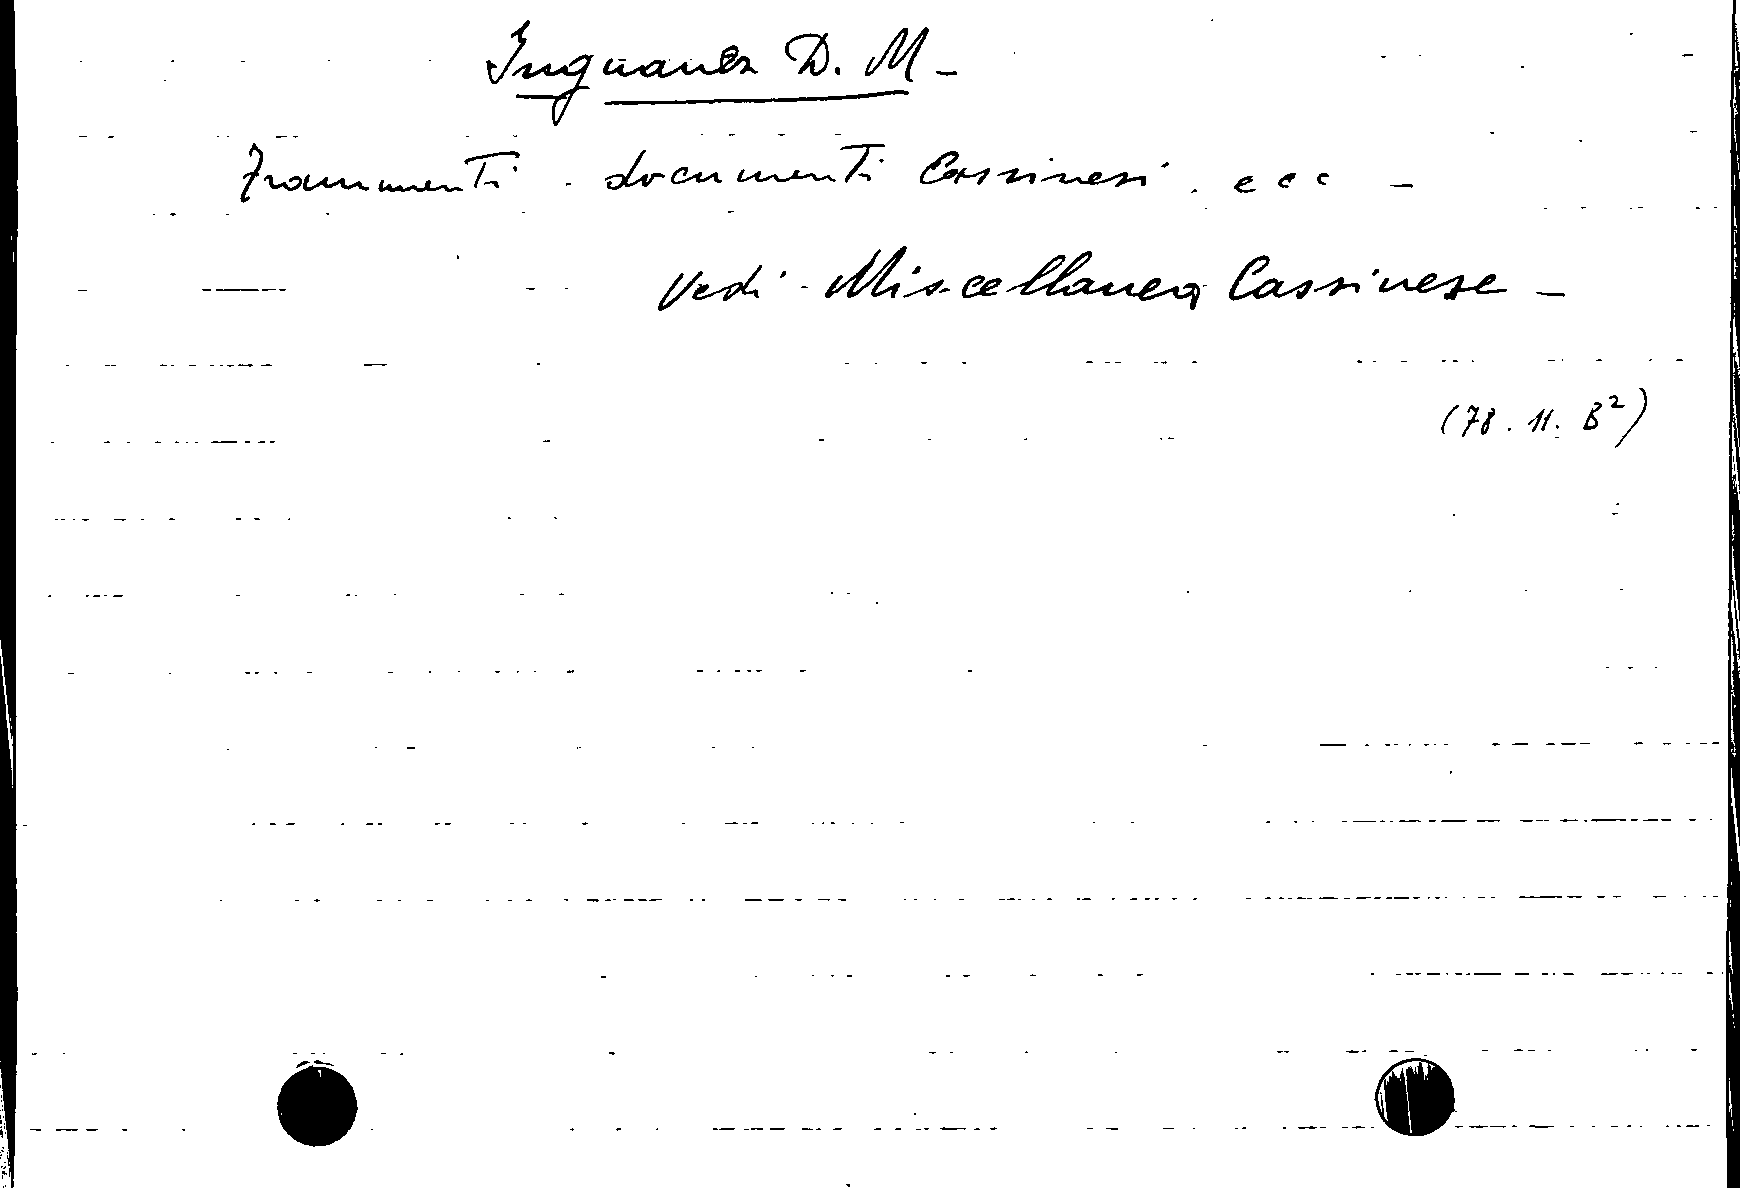 Inguanez D. M -
Frammenti - documenti Cassinesi. ecc -
Vedi - Miscellanea Cassinese -
(78. 11. B²)